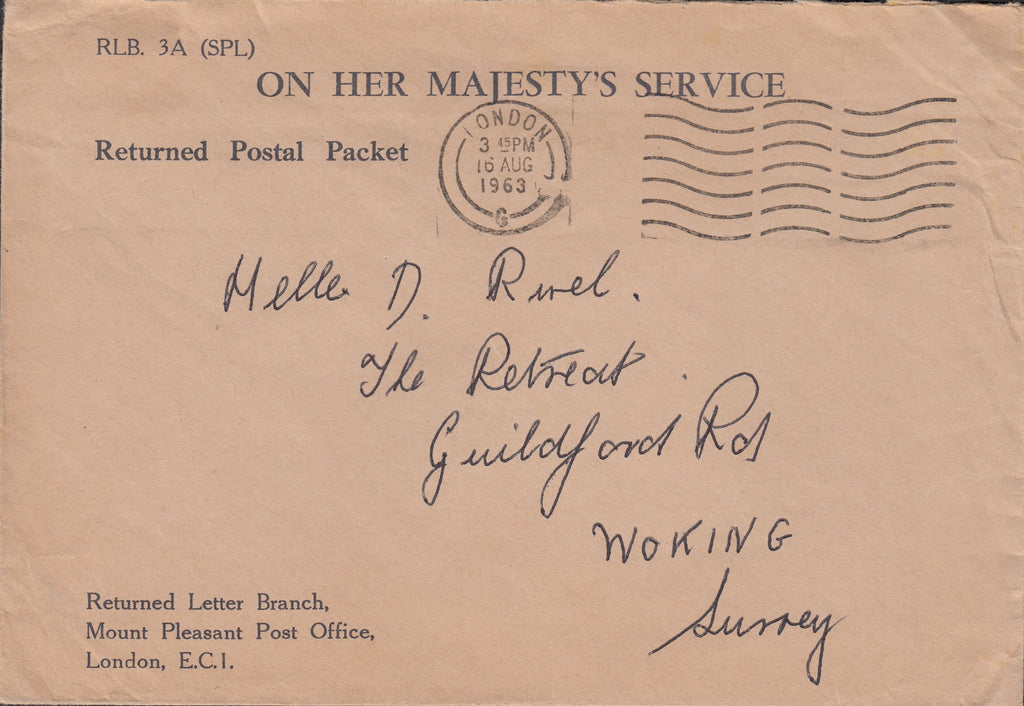 RLB. 3A (SPL)
ON HER MAJESTY'S SERVICE
Returned Postal Packet
LONDON
3 45PM
16 AUG
1963
G
Melle D. Rivel.
The Retreat.
Guildford Rd
WOKING
Surrey
Returned Letter Branch,
Mount Pleasant Post Office,
London, E.C.1.